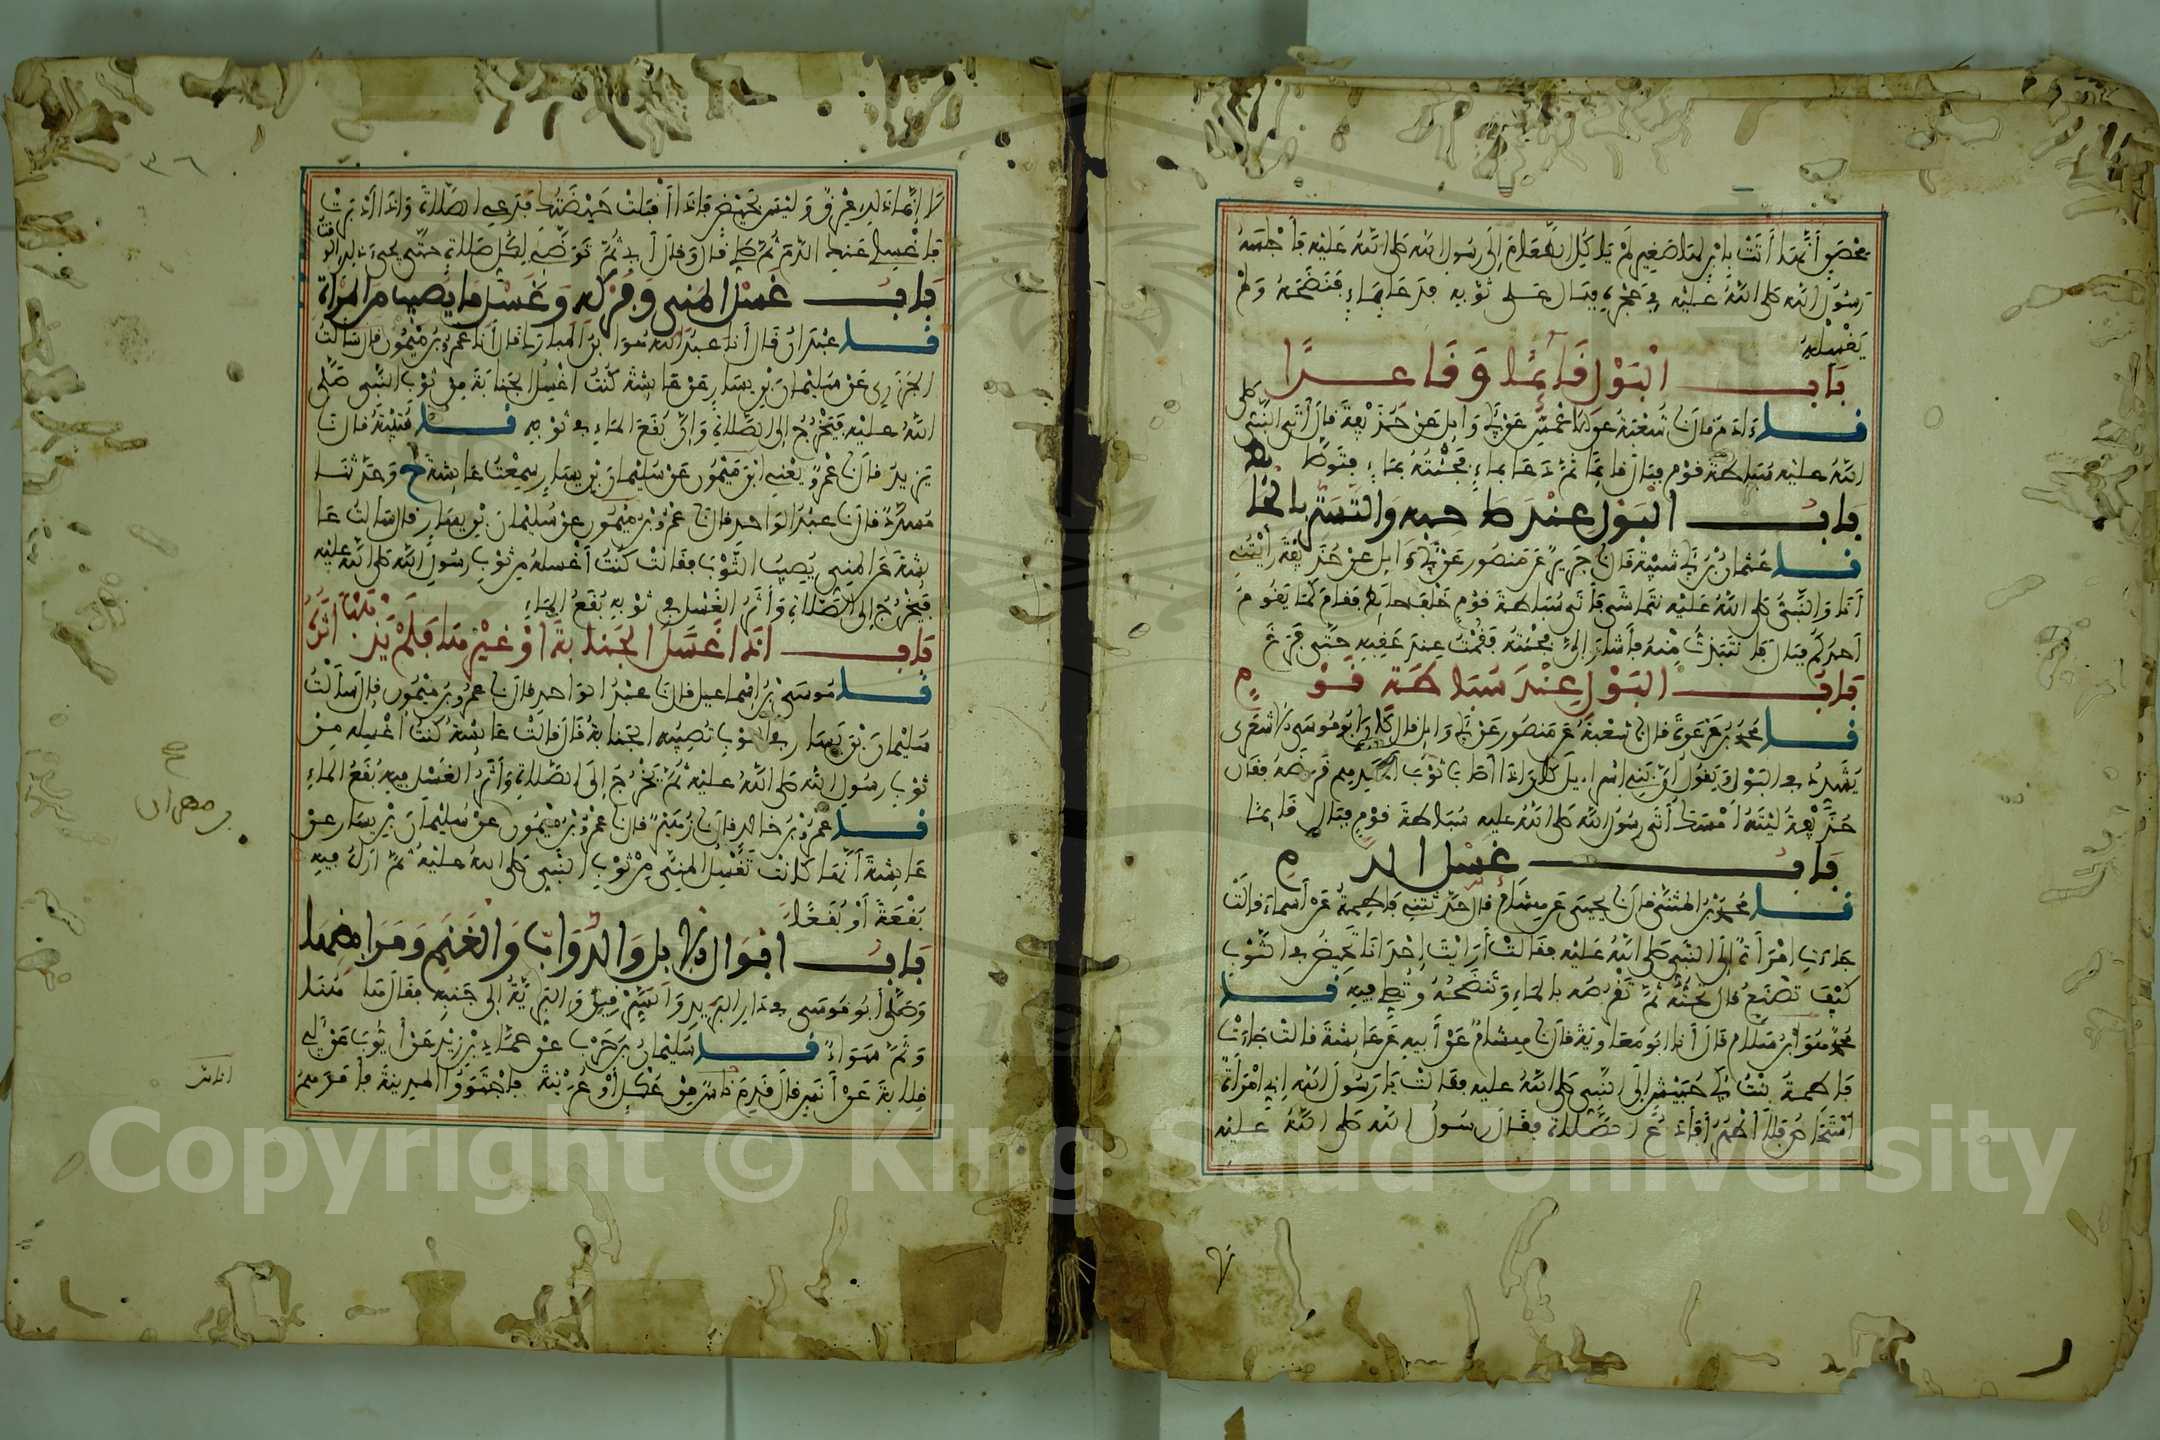 محصن أنها أتت بابن لها صغير لم يأكل الطعام إلى رسول الله صلى الله عليه فأجلسه
رسول الله صلى الله عليه في حجره فبال على ثوبه فدعا بماء فنضحه ولم
يغسله
باب البول قائما وقاعدا
نا ءادم قال نا شعبة عن الاعمش عن أبي وائل عن حذيفة قال أتى النبي صلى
الله عليه سباطة قوم فبال قائما ثم دعا بماء فجئته بماء فتوضأ
باب البول عند صاحبه والتستر بالحا
نا عثمان بن أبي شيبة قال نا جرير عن منصور عن أبي وائل عن حذيفة رأيتني
أنا والنبي صلى الله عليه نتماشى فأتى سباطة قوم خلف حائط فقام كما يقوم
أحدكم فبال فانتبذت منه فأشار إلي فجئته فقمت عند عقبه حتى فرغ
باب البول عند سباطة قوم
نا محمد بن عرعرة قال نا شعبة عن منصور عن أبي وائل قال كان أبو موسى الاشعري
يشدد في البول ويقول إن بني اسراءيل كان إذا أصاب ثوب أحدهم قرضه فقال
حذيفة ليته أمسك أتى رسول الله صلى الله عليه سباطة قوم فبال قائما
باب غسل الدم
نا محمد بن المثنى قال نا يحيى عن هشام قال حدثتني فاطمة عن أسماء قالت
جاءت امرأة إلى النبي صلى الله عليه فقالت أرايت إحدانا تحيض في الثوب
كيف تصنع قال تحته ثم تقرصه بالماء وتنضحه وتصلي فيه نا
محمد هو ابن سلام قال أنا ابو معاوية قال نا هشام عن أبيه عن عائشة قالت جاءت
فاطمة بنت أبي حبيش إلى النبي صلى الله عليه فقالت يا رسول الله إني امرأة
أستحاض فلا أطهر أفأدع الصلاة فقال رسول الله صلى الله عليه
٣٦
لا إنما ذلك عرق وليس بحيض فإذا أقبلت حيضتك فدعي الصلاة وإذا أدبرت
فاغسلي عنك الدم ثم صلي قال وقال أبي ثم توضئي لكل صلاة حتى يجيء ذلك الوقت
باب غسل المني وفركه وغسل ما يصيب من المرأة
نا عبدان قال أنا عبد الله هو ابن المبارك قال أنا عمرو بن ميمون قال سالت
الجزري عن سليمان بن يسار عن عائشة كنت اغسل الجنابة من ثوب النبي صلى
الله عليه فيخرج إلى الصلاة وإن بقع الماء في ثوبه نا قتيبة قال نا
يزيد قال نا عمرو يعني ابن ميمون عن سليمان بن يسار سمعت عائشة ح وحدثنا
مسدد قال نا عبد الواحد قال نا عمرو بن ميمون عن سليمان بن يسار قال سالت عا
ئشة عن المني يصيب الثوب فقالت كنت أغسله من ثوب رسول الله صلى الله عليه
فيخرج إلى الصلاة وأثر الغسل في ثوبه بقع الماء
باب إذا غسل الجنابة أو غيرها فلم يذهب أثره
نا موسى بن إسماعيل قال نا عبد الواحد قال نا عمرو بن ميمون قال سألت
سليمان بن يسار في الثوب تصيبه الجنابة قال قالت عائشة كنت أغسله من
ثوب رسول الله صلى الله عليه ثم يخرج إلى الصلاة وأثر الغسل فيه بقع الماء
نا عمرو بن خالد قال نا زهير قال نا عمرو بن ميمون عن سليمان بن يسار عن
عائشة أنها كانت تغسل المني من ثوب النبي صلى الله عليه ثم أراه فيه
بقعة أو بقعا
باب ابوال الابل والدواب والغنم ومرابضها
وصلى أبو موسى في دار البريد والسرقين والبرية إلى جنبه فقال هاهنا
وثم سواء نا سليمان بن حرب عن حماد بن زيد عن أيوب عن أبي
قلابة عن أنس قال قدم ناس من عكل أو عرينة فاجتووا المدينة فأمرهم
بن مهران
Copyright © King Saud University